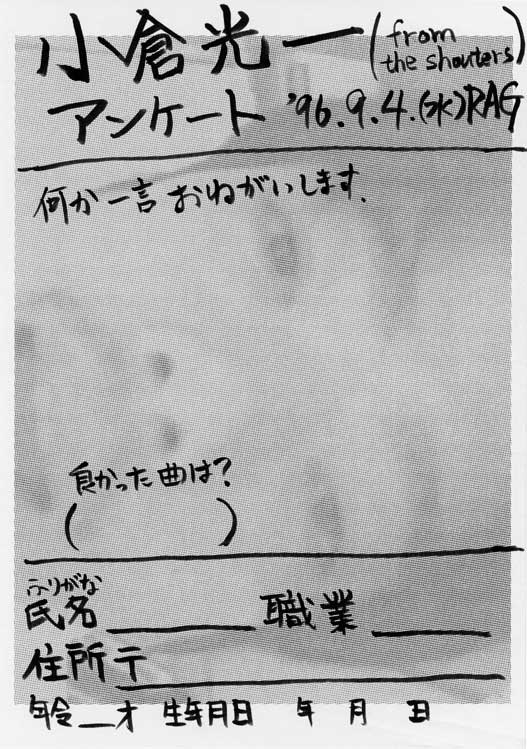 小倉光一 (from the shouters)
アンケート '96.9.4.(水)RAG
何か一言おねがいします.
良かった曲は?
( )
ふりがな
氏名 職業
住所〒
年令 才 生年月日 年 月 日